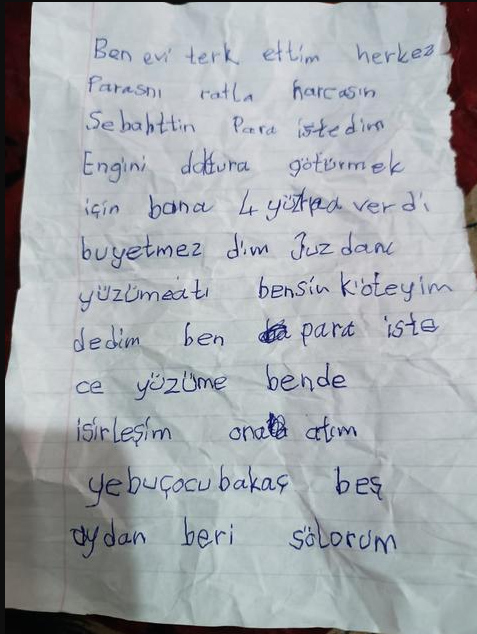 Ben evi terk ettim herkez
Parasnı ratla harcasın
Sebahttin Para istedim
Engini doktura götürmek
için bana 4 yüz verdi
buyetmez dim Juzdanı
yüzümeatı bensin köteyim
dedim ben para iste
ce yüzüme bende
isirleşim ona atım
yebuçocubakaç beş
aydan beri sölorum